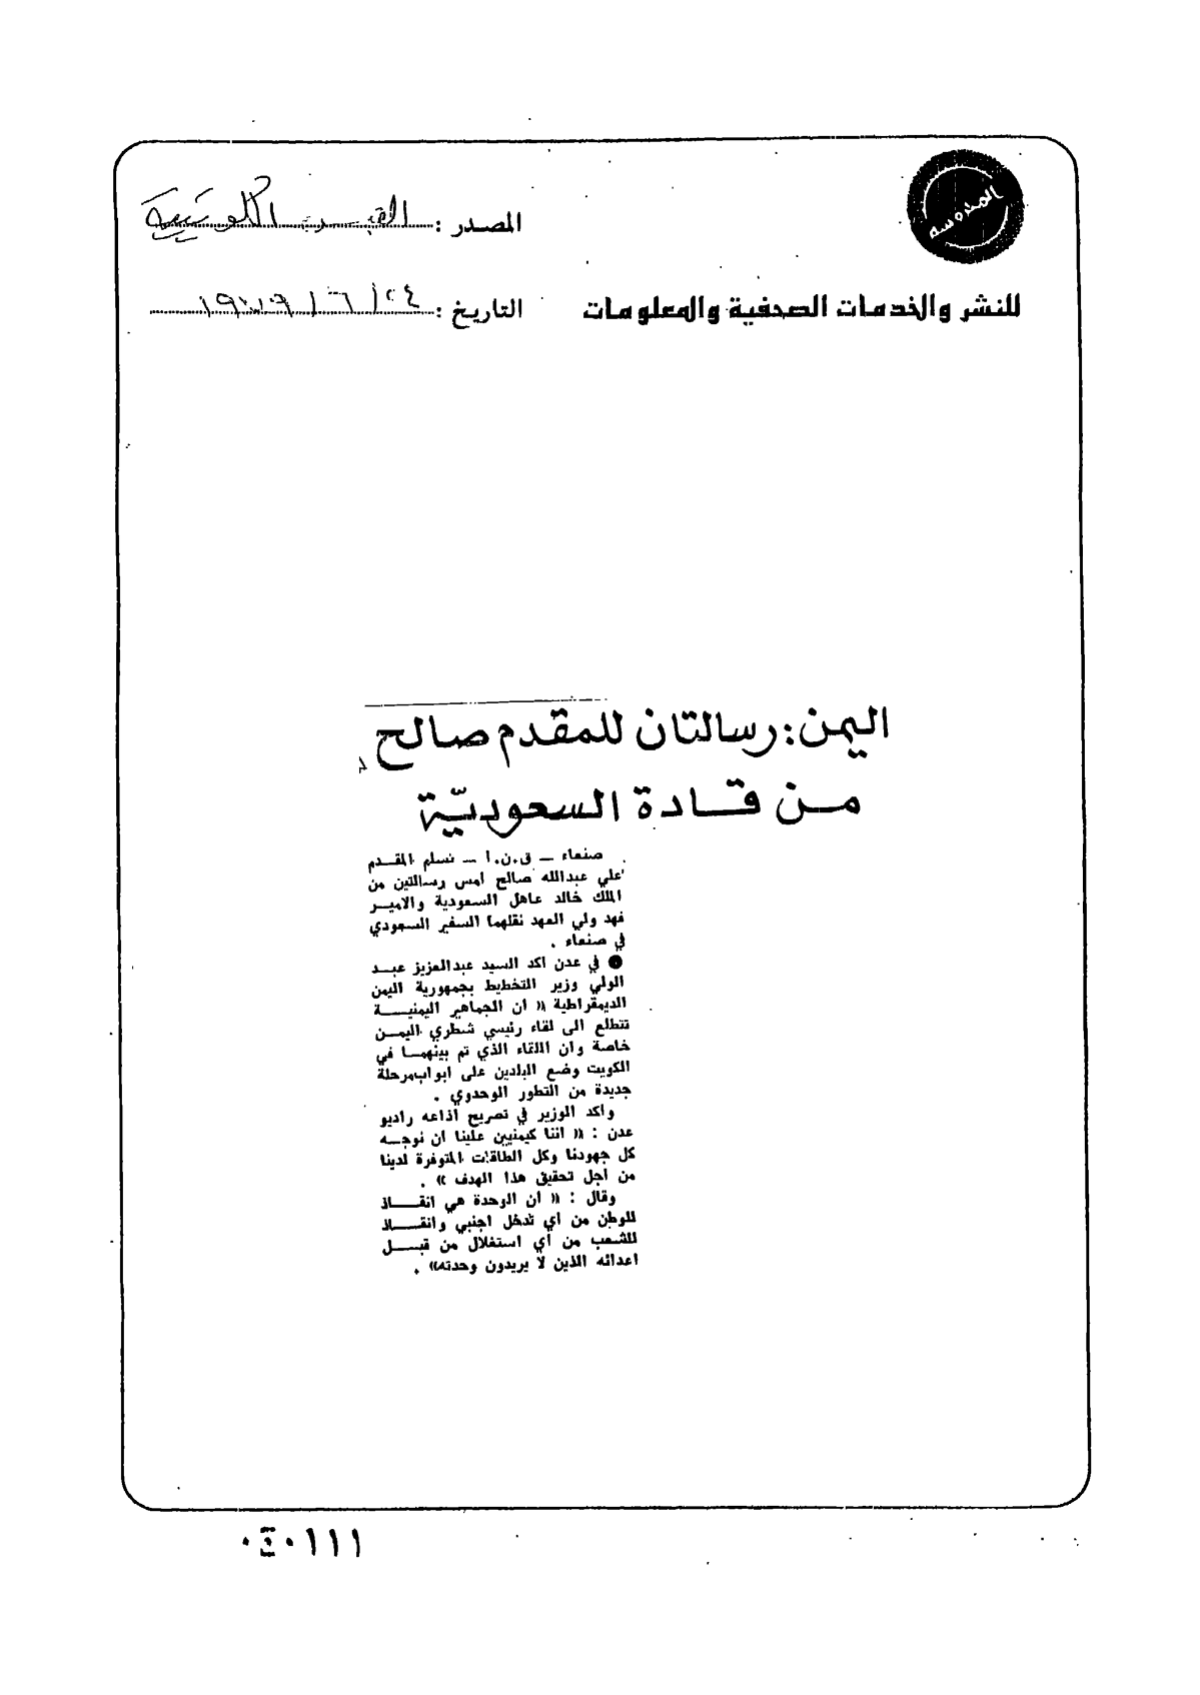 المدرسة
للنشر والخدمات الصحفية والمعلومات
المصدر : القبس الكويتية
التاريخ : ٢٤ / ٦ / ١٩٧٩
اليمن: رسالتان للمقدم صالح
من قادة السعوديّة
صنعاء - ق.ن.ا - تسلم المقدم
علي عبدالله صالح امس رسالتين من
الملك خالد عاهل السعودية والامير
فهد ولي العهد نقلهما السفير السعودي
في صنعاء .
● في عدن اكد السيد عبدالعزيز عبد
الولي وزير التخطيط بجمهورية اليمن
الديمقراطية « ان الجماهير اليمنية
تتطلع الى لقاء رئيسي شطري اليمن
خاصة وان اللقاء الذي تم بينهما في
الكويت وضع البلدين على ابواب مرحلة
جديدة من التطور الوحدوي .
واكد الوزير في تصريح اذاعه راديو
عدن : « اننا كيمنيين علينا ان نوجه
كل جهودنا وكل الطاقات المتوفرة لدينا
من اجل تحقيق هذا الهدف » .
وقال : « ان الوحدة هي انقاذ
للوطن من أي تدخل اجنبي وانقاذ
للشعب من أي استغلال من قبل
اعدائه الذين لا يريدون وحدته» .